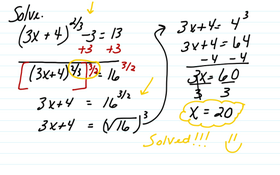 Solve.
(3x+4)^2/3 -3 = 13
+3 +3
[(3x+4)^2/3]^3/2 = 16^3/2
3x+4 = 16^3/2
3x+4 = (√16)^3
3x+4 = 4^3
3x+4 = 64
-4 -4
3x = 60
3 3
x = 20
Solved!!!